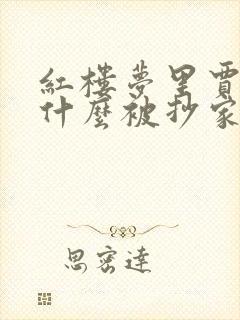 紅樓夢里賈
什麼被抄家
思密達